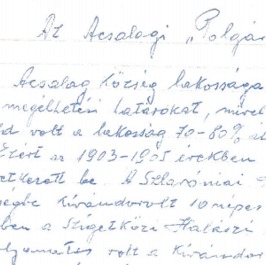 Az Acsalagi „Polgár
Acsalag község lakossága
megélhetési határokat, művel
volt a lakosság 70-80%
Ezért az 1903-1905 években
be. A Szlavoniai
kivándorolt 10 népes
ben a Szigetközi Halászi
volt a kivándor